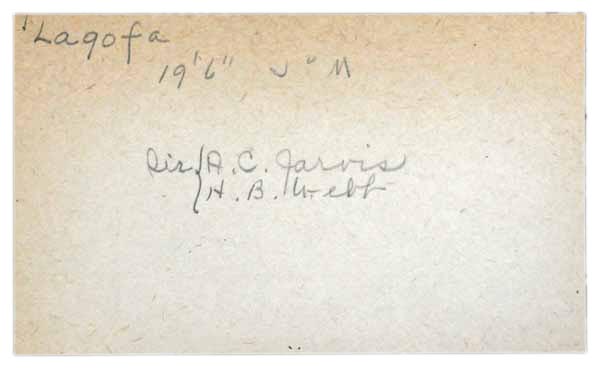 'Lagofa
19'6" J" M
Dir { A. C. Jarvis
H. B. Webb